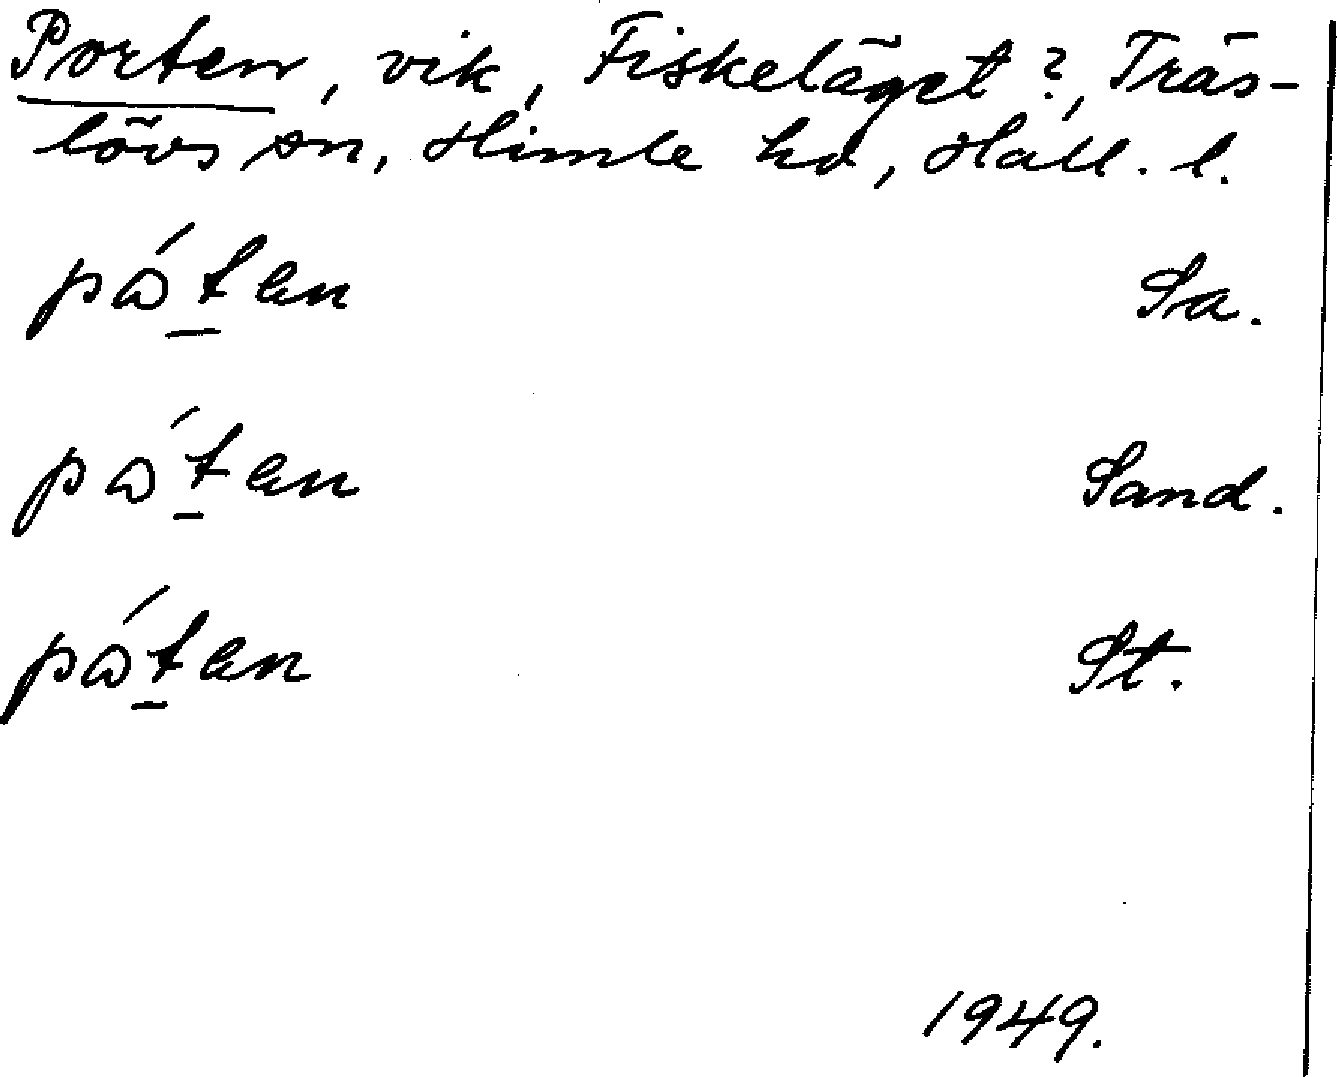 Porten, vik, Fiskeläget?, Träs-
lövs sn, Himle hd, Hall. l.
pɷ́t̠ən Sa.
pɷ́t̠ən Sand.
pɷ́t̠ən St.
1949.